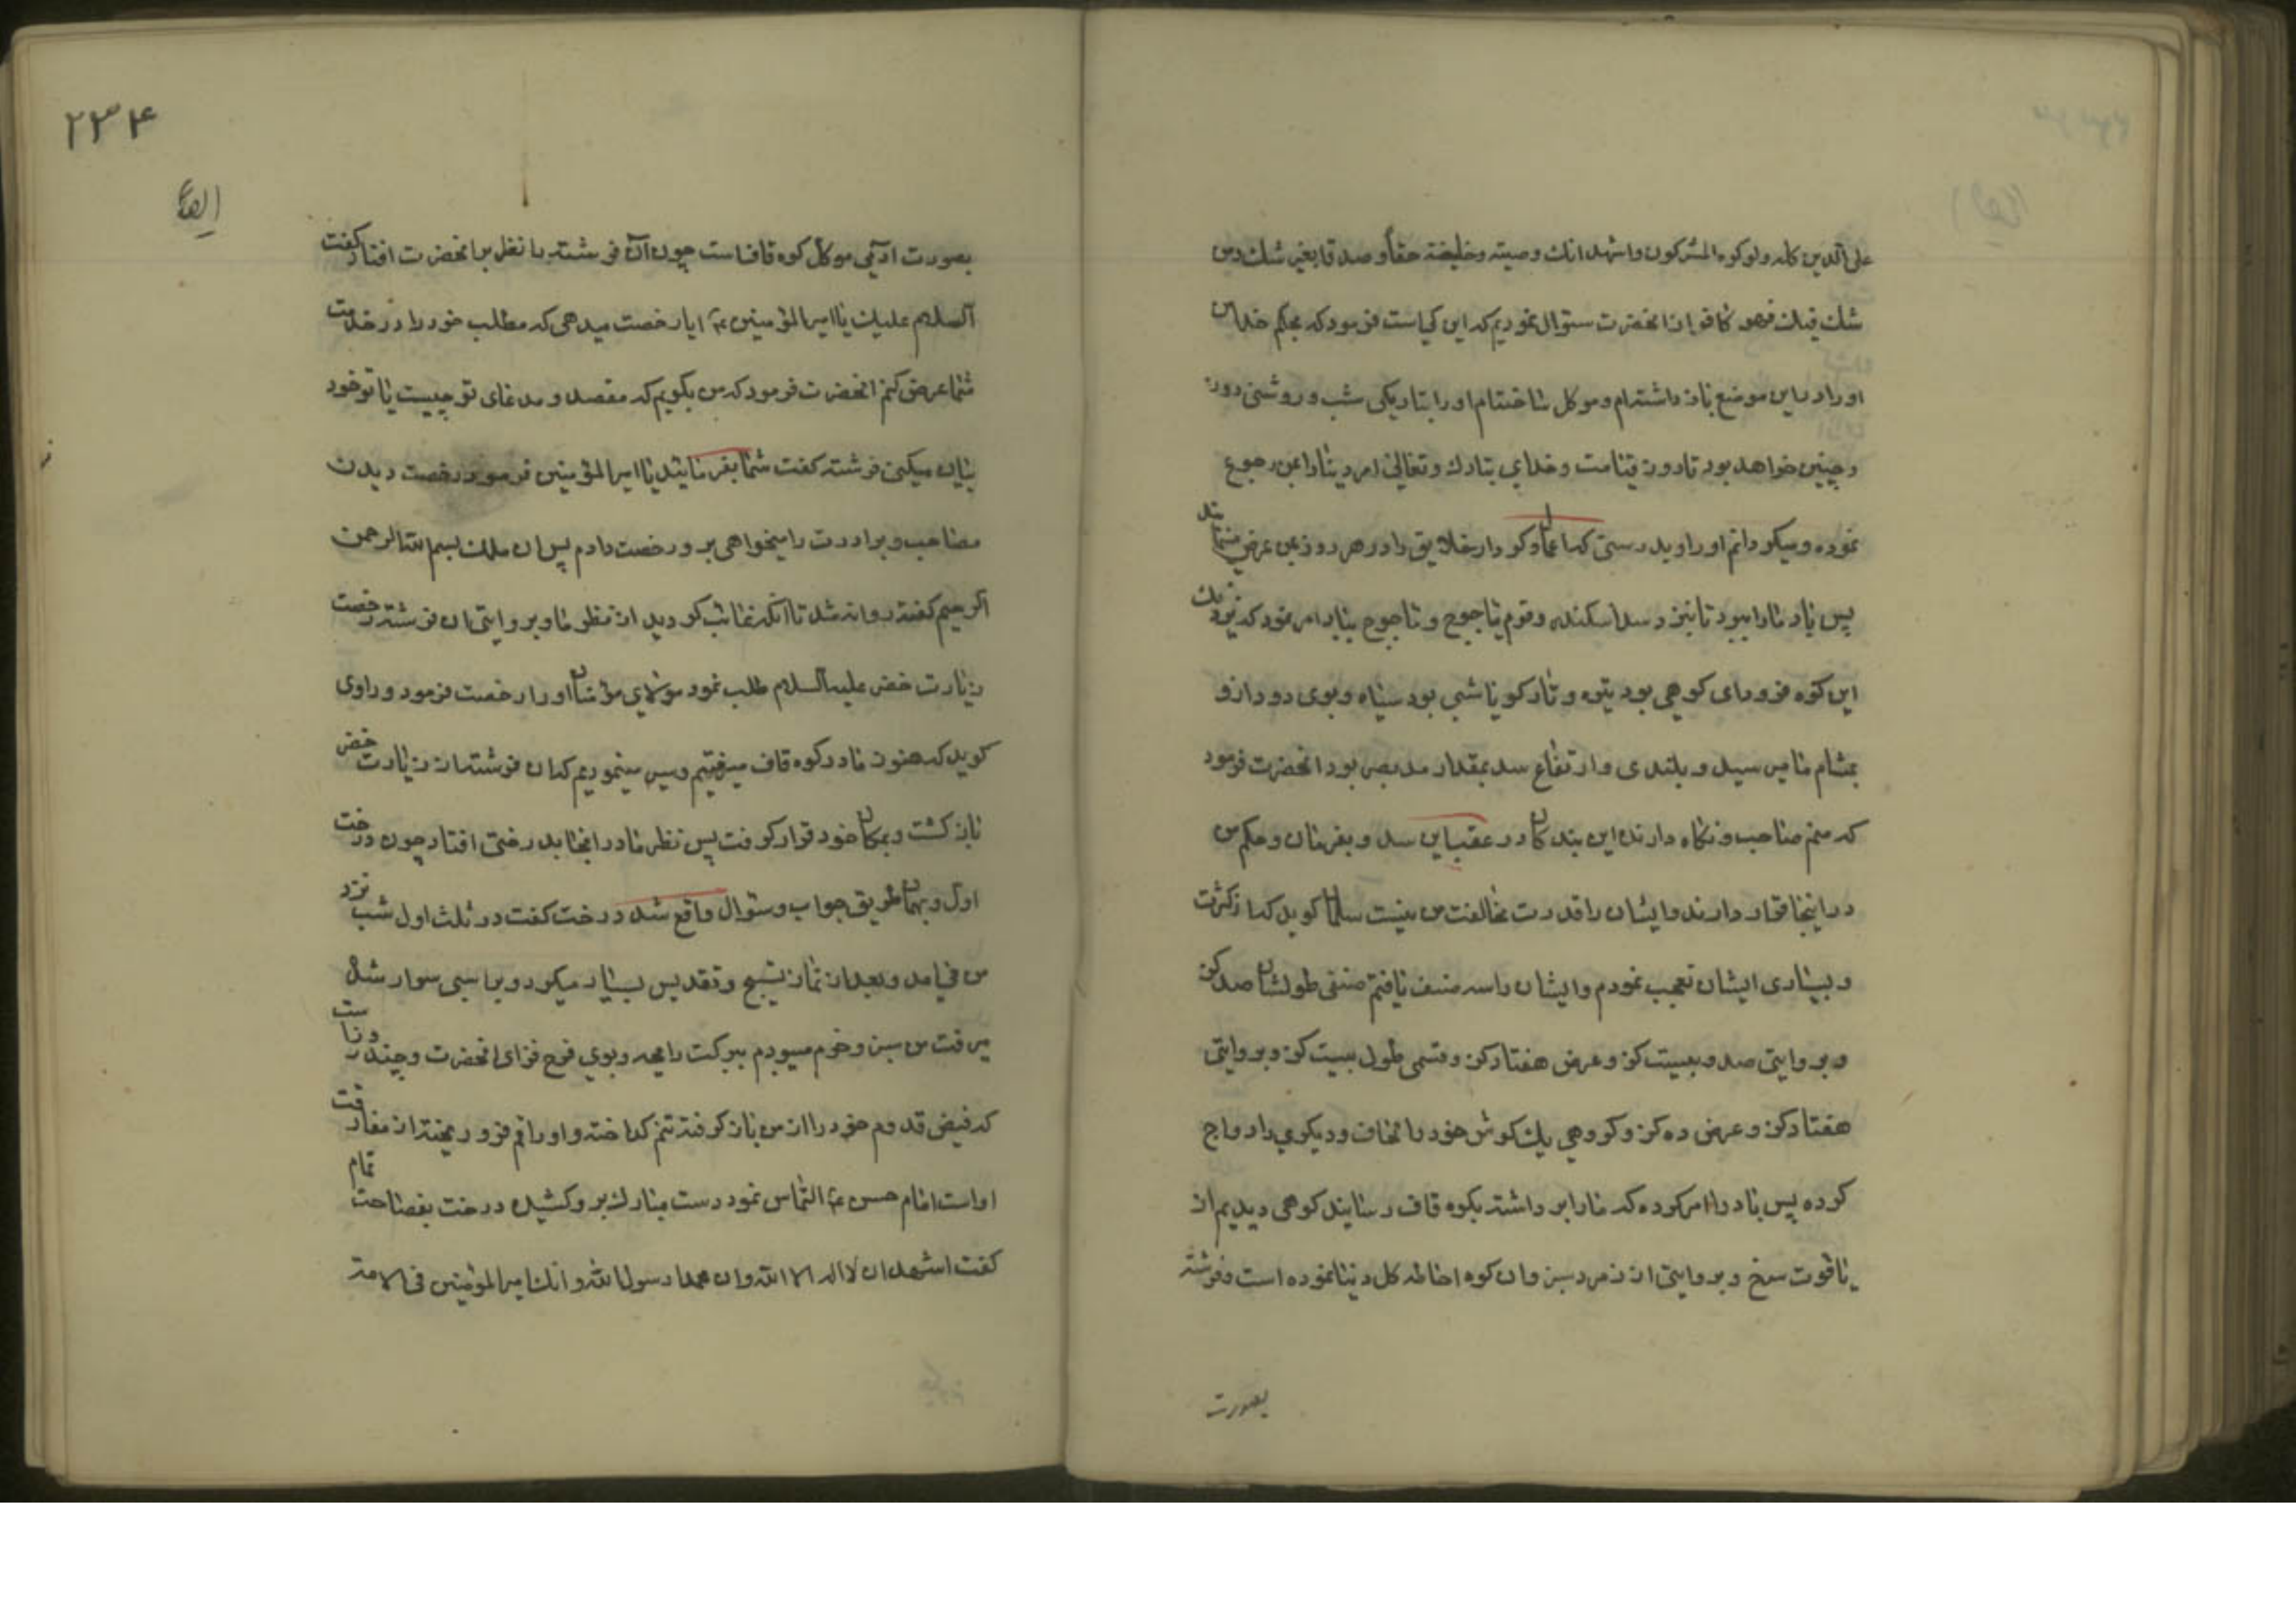 على الدين كله ولو كره المشركون واشهد انك وصيته وخليفته حقاً و صدقا بغير شك و من
شك فيك فهو كافر از انحضرت سئوال نموديم كه اين كياست فرمود كه بحكم خدا من
او را در اين موضع باز داشته‌ام و موكل ساخته‌ام او را بتاريكى شب و روشنى روز
و چنين خواهد بود تا روز قيامت و خداى تبارك و تعالى امر دنيا را بمن رجوع
نموده و ميكردانم او را و بدرستى كه اعمال و كردار خلايق را در هر روز بمن عرض مينمايند
پس باد ما را ببرد تا بنزد سد اسكندر و قوم ياجوج و ماجوج بباد امر نمود كه نزديك
اين كوه فرود اى كوهى بود تيره و تار كويا شبى بود سياه و بوى دود از و
بمشام ما ميرسيد و بلندى و ارتفاع سد بمقدار مد بصر بود انحضرت فرمود
كه منم صاحب و نكاه دارنده اين بندكان در عقب اين سد و بفرمان و حكم من
در اينجا قرار دارند و ايشان را قدرت مخالفت من نيست سلمان كويد كه از كثرت
و بسيارى ايشان تعجب نمودم و ايشان را سه صنف يافتم صنفى طولشان صد كز
و بروايتى صد و بيست كز و عرض هفتاد كز و قسمى طول بيست كز و بروايتى
هفتاد كز و عرض ده كز و كروهى يك كوش خود را لحاف و ديكرى را دواج
كرده پس باد را امر كرده كه ما را برداشته بكوه قاف رسانيد كوهى ديديم از
ياقوت سرخ و بروايتى از زمرد سبز و ان كوه احاطه كل دنيا نموده است و فرشته
بصورت
۲۳۴
بصورت ادمى موكل كوه قافست چون آن فرشته را نظر بر انحضرت افتاد كفت
السلام عليك يا امير المؤمنين ايا رخصت ميدهى كه مطلب خود را در خدمت
شما عرض كنم انحضرت فرمود كه من بكويم كه مقصد و مدعاى تو چيست يا تو خود
بيان ميكنى فرشته كفت شما بفرمائيد يا امير المؤمنين فرمود رخصت ديدن
مصاحب و برادرت را ميخواهى برو رخصت دادم پس ان ملك بسم الله الرحمن
الرحيم كفته روانه شد تا انكه غائب كرديد از نظر ما و بروايتى ان فرشته رخصت
زيارت خضر عليه السلام طلب نمود مولاى مؤمنان او را رخصت فرمود و راوى
كويد كه هنوز ما در كوه قاف ميرفتيم و سير مينموديم كه ان فرشته از زيارت خضر
باز كشت و بمكان خود قرار كرفت پس نظر ما در انجا بدرختى افتاد چون درخت
اول و بهمان طريق جواب و سئوال واقع شد درخت كفت در ثلث اول شب نزد
من مى امد و بعد از نماز تسبيح و تقديس بسيار ميكرد و بر اسبى سوار شده
ميرفت من سبز و خرم ميبودم ببركت رايحه و بوى فرح فزاى انحضرت و چند روز است
كه فيض قدوم خود را از من باز كرفته تنم كداخته و اوراقم فرو ريخته از مفارقت
اوست امام حسن التماس نمود دست مبارك بر و كشيده درخت بفصاحت تمام
كفت اشهد ان لا اله الا الله و ان محمدا رسول الله و انك امير المؤمنين فى الامة